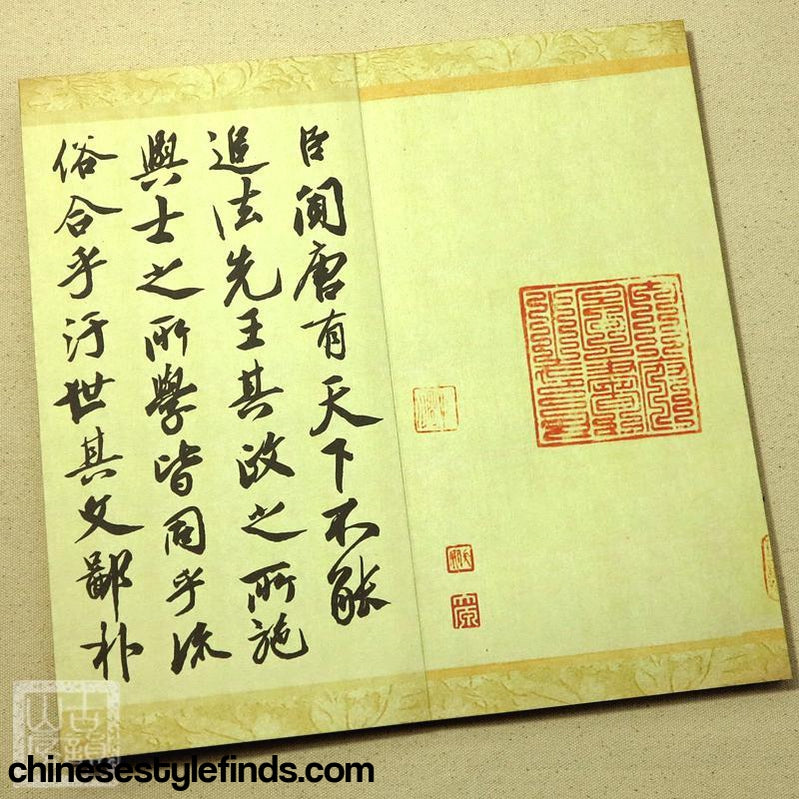 臣闻唐有天下不能
追法先王其政之所施
與士之所學皆同乎流
俗合乎汙世其文鄙朴
chinesestylefinds.com